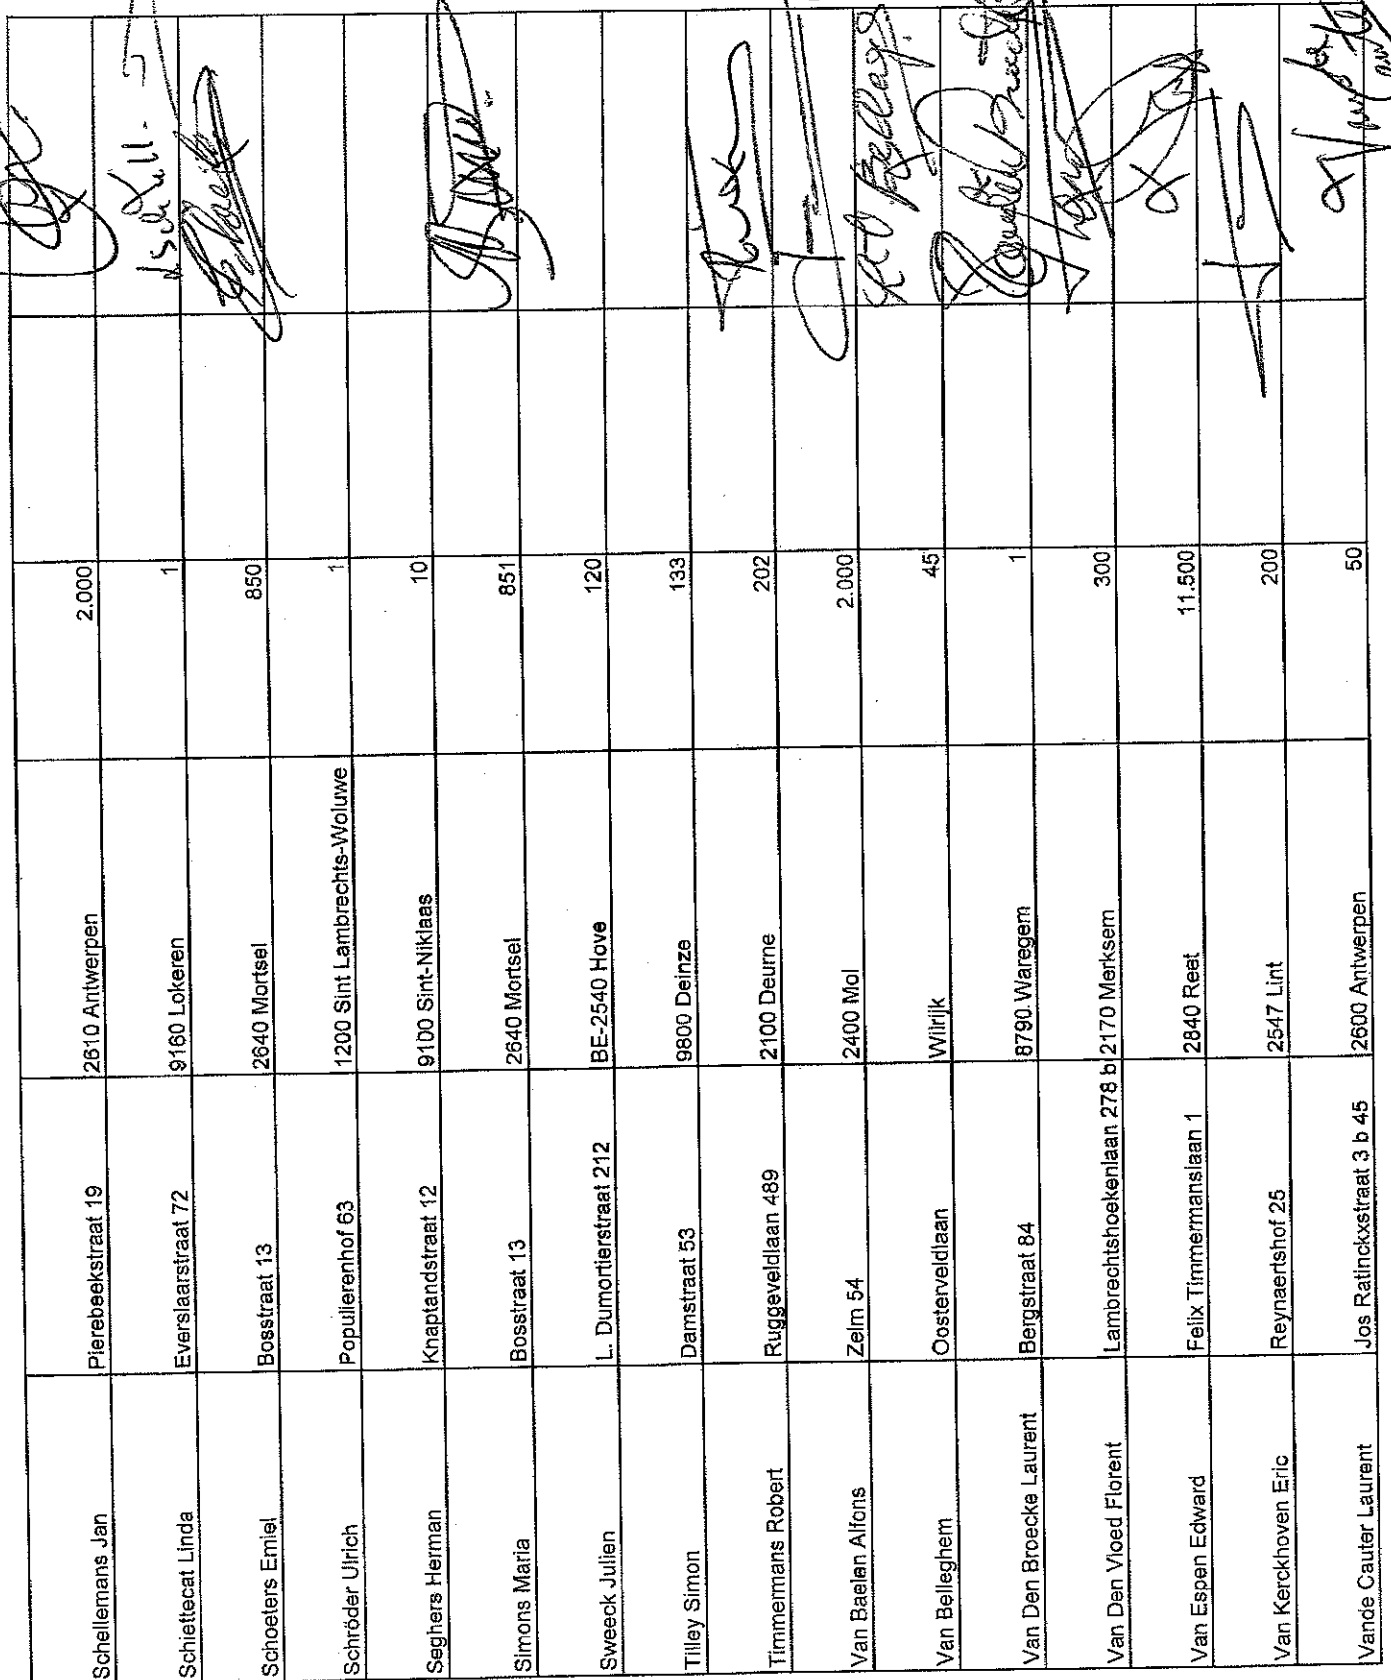 Schellemans Jan Pierebeekstraat 19 2610 Antwerpen 2.000
Schiettecat Linda Everslaarstraat 72 9160 Lokeren 1
Schoeters Emiel Bosstraat 13 2640 Mortsel 850
Schröder Ulrich Populierenhof 63 1200 Sint Lambrechts-Woluwe 1
Seghers Herman Knaptandstraat 12 9100 Sint-Niklaas 10
Simons Maria Bosstraat 13 2640 Mortsel 851
Sweeck Julien L. Dumortierstraat 212 BE-2540 Hove 120
Tilley Simon Damstraat 53 9800 Deinze 133
Timmermans Robert Ruggeveldlaan 489 2100 Deurne 202
Van Baelen Alfons Zelm 54 2400 Mol 2.000
Van Belleghem Oosterveldlaan Wilrijk 45
Van Den Broecke Laurent Bergstraat 84 8790 Waregem 1
Van Den Vloed Florent Lambrechtshoekenlaan 278 b 2170 Merksem 300
Van Espen Edward Felix Timmermanslaan 1 2840 Reet 11.500
Van Kerckhoven Eric Reynaertshof 25 2547 Lint 200
Vande Cauter Laurent Jos Ratinckxstraat 3 b 45 2600 Antwerpen 50